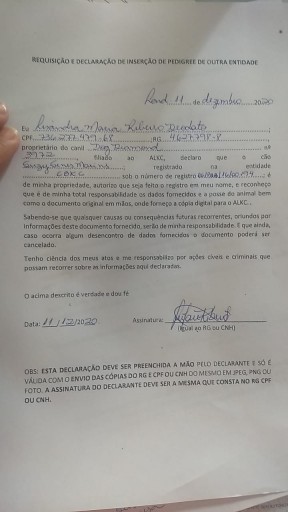 REQUISIÇÃO E DECLARAÇÃO DE INSERÇÃO DE PEDIGREE DE OUTRA ENTIDADE
11 de dezembro 2020
Eu Lisandra Maria Ribeiro Deodato
CPF 736.277.479-68 RG 4627798-8
proprietário do canil Dog Diamond nº
2972 filiado ao ALKC, declaro que o cão
registrado na entidade
CBKC sob o número de registro é
de minha propriedade, autorizo que seja feito o registro em meu nome, e reconheço
que é de minha total responsabilidade os dados fornecidos e a posse do animal bem
como o documento original em mãos, onde forneço a cópia digital para o ALKC.
Sabendo-se que quaisquer causas ou consequências futuras recorrentes, oriundos por
informações deste documento fornecido, serão de minha responsabilidade. E que ainda,
caso ocorra algum desencontro de dados fornecidos o documento poderá ser
cancelado.
Tenho ciência dos meus atos e me responsabilizo por ações cíveis e criminais que
possam recorrer sobre as informações aqui declaradas.
O acima descrito é verdade e dou fé
Data: 11/12/2020 Assinatura:
(igual ao RG ou CNH)
OBS: ESTA DECLARAÇÃO DEVE SER PREENCHIDA A MÃO PELO DECLARANTE E SÓ É
VÁLIDA COM O ENVIO DAS CÓPIAS DO RG E CPF OU CNH DO MESMO EM JPEG, PNG OU
FOTO. A ASSINATURA DO DECLARANTE DEVE SER A MESMA QUE CONSTA NO RG CPF
OU CNH.